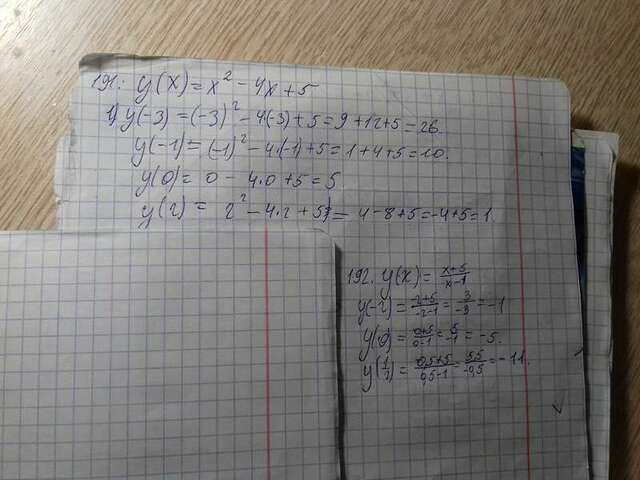 191: y(x) = x² - 4x + 5
1) y(-3) = (-3)² - 4(-3) + 5 = 9 + 12 + 5 = 26.
y(-1) = (-1)² - 4·(-1) + 5 = 1 + 4 + 5 = 10.
y(0) = 0 - 4·0 + 5 = 5.
y(2) = 2² - 4·2 + 5 = 4 - 8 + 5 = -4 + 5 = 1.
192. y(x) = (x+5)/(x-1)
y(-2) = (-2+5)/(-2-1) = 3/-3 = -1
y(0) = (0+5)/(0-1) = 5/-1 = -5.
y(1/2) = (0,5+5)/(0,5-1) = 5,5/-0,5 = -11.